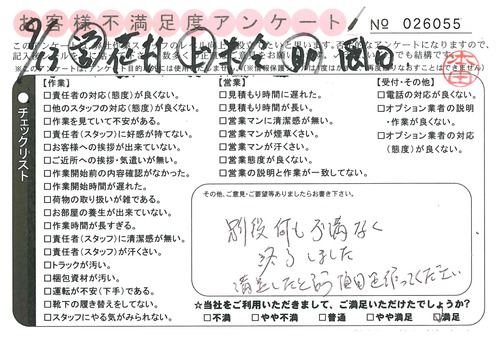 お客様不満足度アンケート
No 026055
9/3
【作業】
□責任者の対応(態度)が良くない。
□他のスタッフの対応(態度)が良くない。
□作業を見ていて不安がある。
□責任者(スタッフ)に好感が持てない。
□お客様への挨拶が出来ていない。
□ご近所への挨拶・気遣いが無い。
□作業開始前の内容確認がなかった。
□作業開始時間が遅れた。
□荷物の取り扱いが雑である。
□お部屋の養生が出来ていない。
□作業時間が長すぎる。
□責任者(スタッフ)に清潔感が無い。
□責任者(スタッフ)が汗くさい。
□トラックが汚い。
□梱包資材が汚い。
□運転が不安(下手)である。
□靴下の履き替えをしてない。
□スタッフにやる気がみられない。
チェックリスト
【営業】
□見積もり時間に遅れた。
□見積もり時間が長い。
□営業マンに清潔感が無い。
□営業マンが煙草くさい。
□営業マンが汗くさい。
□営業態度が良くない。
□営業の説明と作業が一致してない。
【受付・その他】
□電話の対応が良くない。
□オプション業者の説明
・作業が良くない。
□オプション業者の対応
(態度)が良くない。
その他、ご意見・ご要望等ありましたらお書き下さい。
別段何も不満なく
終了しました
☆当社をご利用いただきまして、ご満足いただけたでしょうか?
□不満 □やや不満 □普通 □やや満足 ☑満足